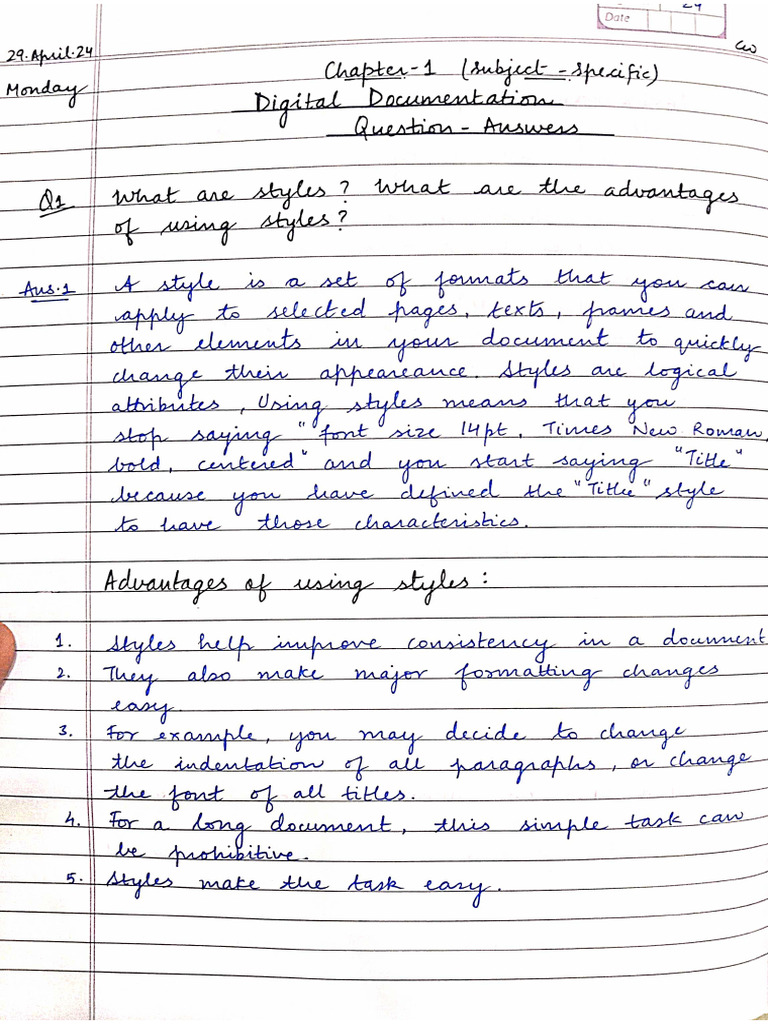 29
Date
CW
29.April.24
Chapter-1 (Subject-Specific)
Monday
Digital Documentation
Question-Answers
Q1 What are styles? What are the advantages
of using styles?
Ans.1 A style is a set of formats that you can
apply to selected pages, texts, frames and
other elements in your document to quickly
change their appeareance. Styles are logical
attributes, Using styles means that you
stop saying "font size 14pt, Times New Roman,
bold, centered" and you start saying "Title"
because you have defined the "Title" style
to have those characteristics.
Advantages of using styles:
1. Styles help improve consistency in a document
2. They also make major formatting changes
easy.
3. For example, you may decide to change
the indentation of all paragraphs, or change
the font of all titles.
4. For a long document, this simple task can
be prohibitive.
5. Styles make the task easy.